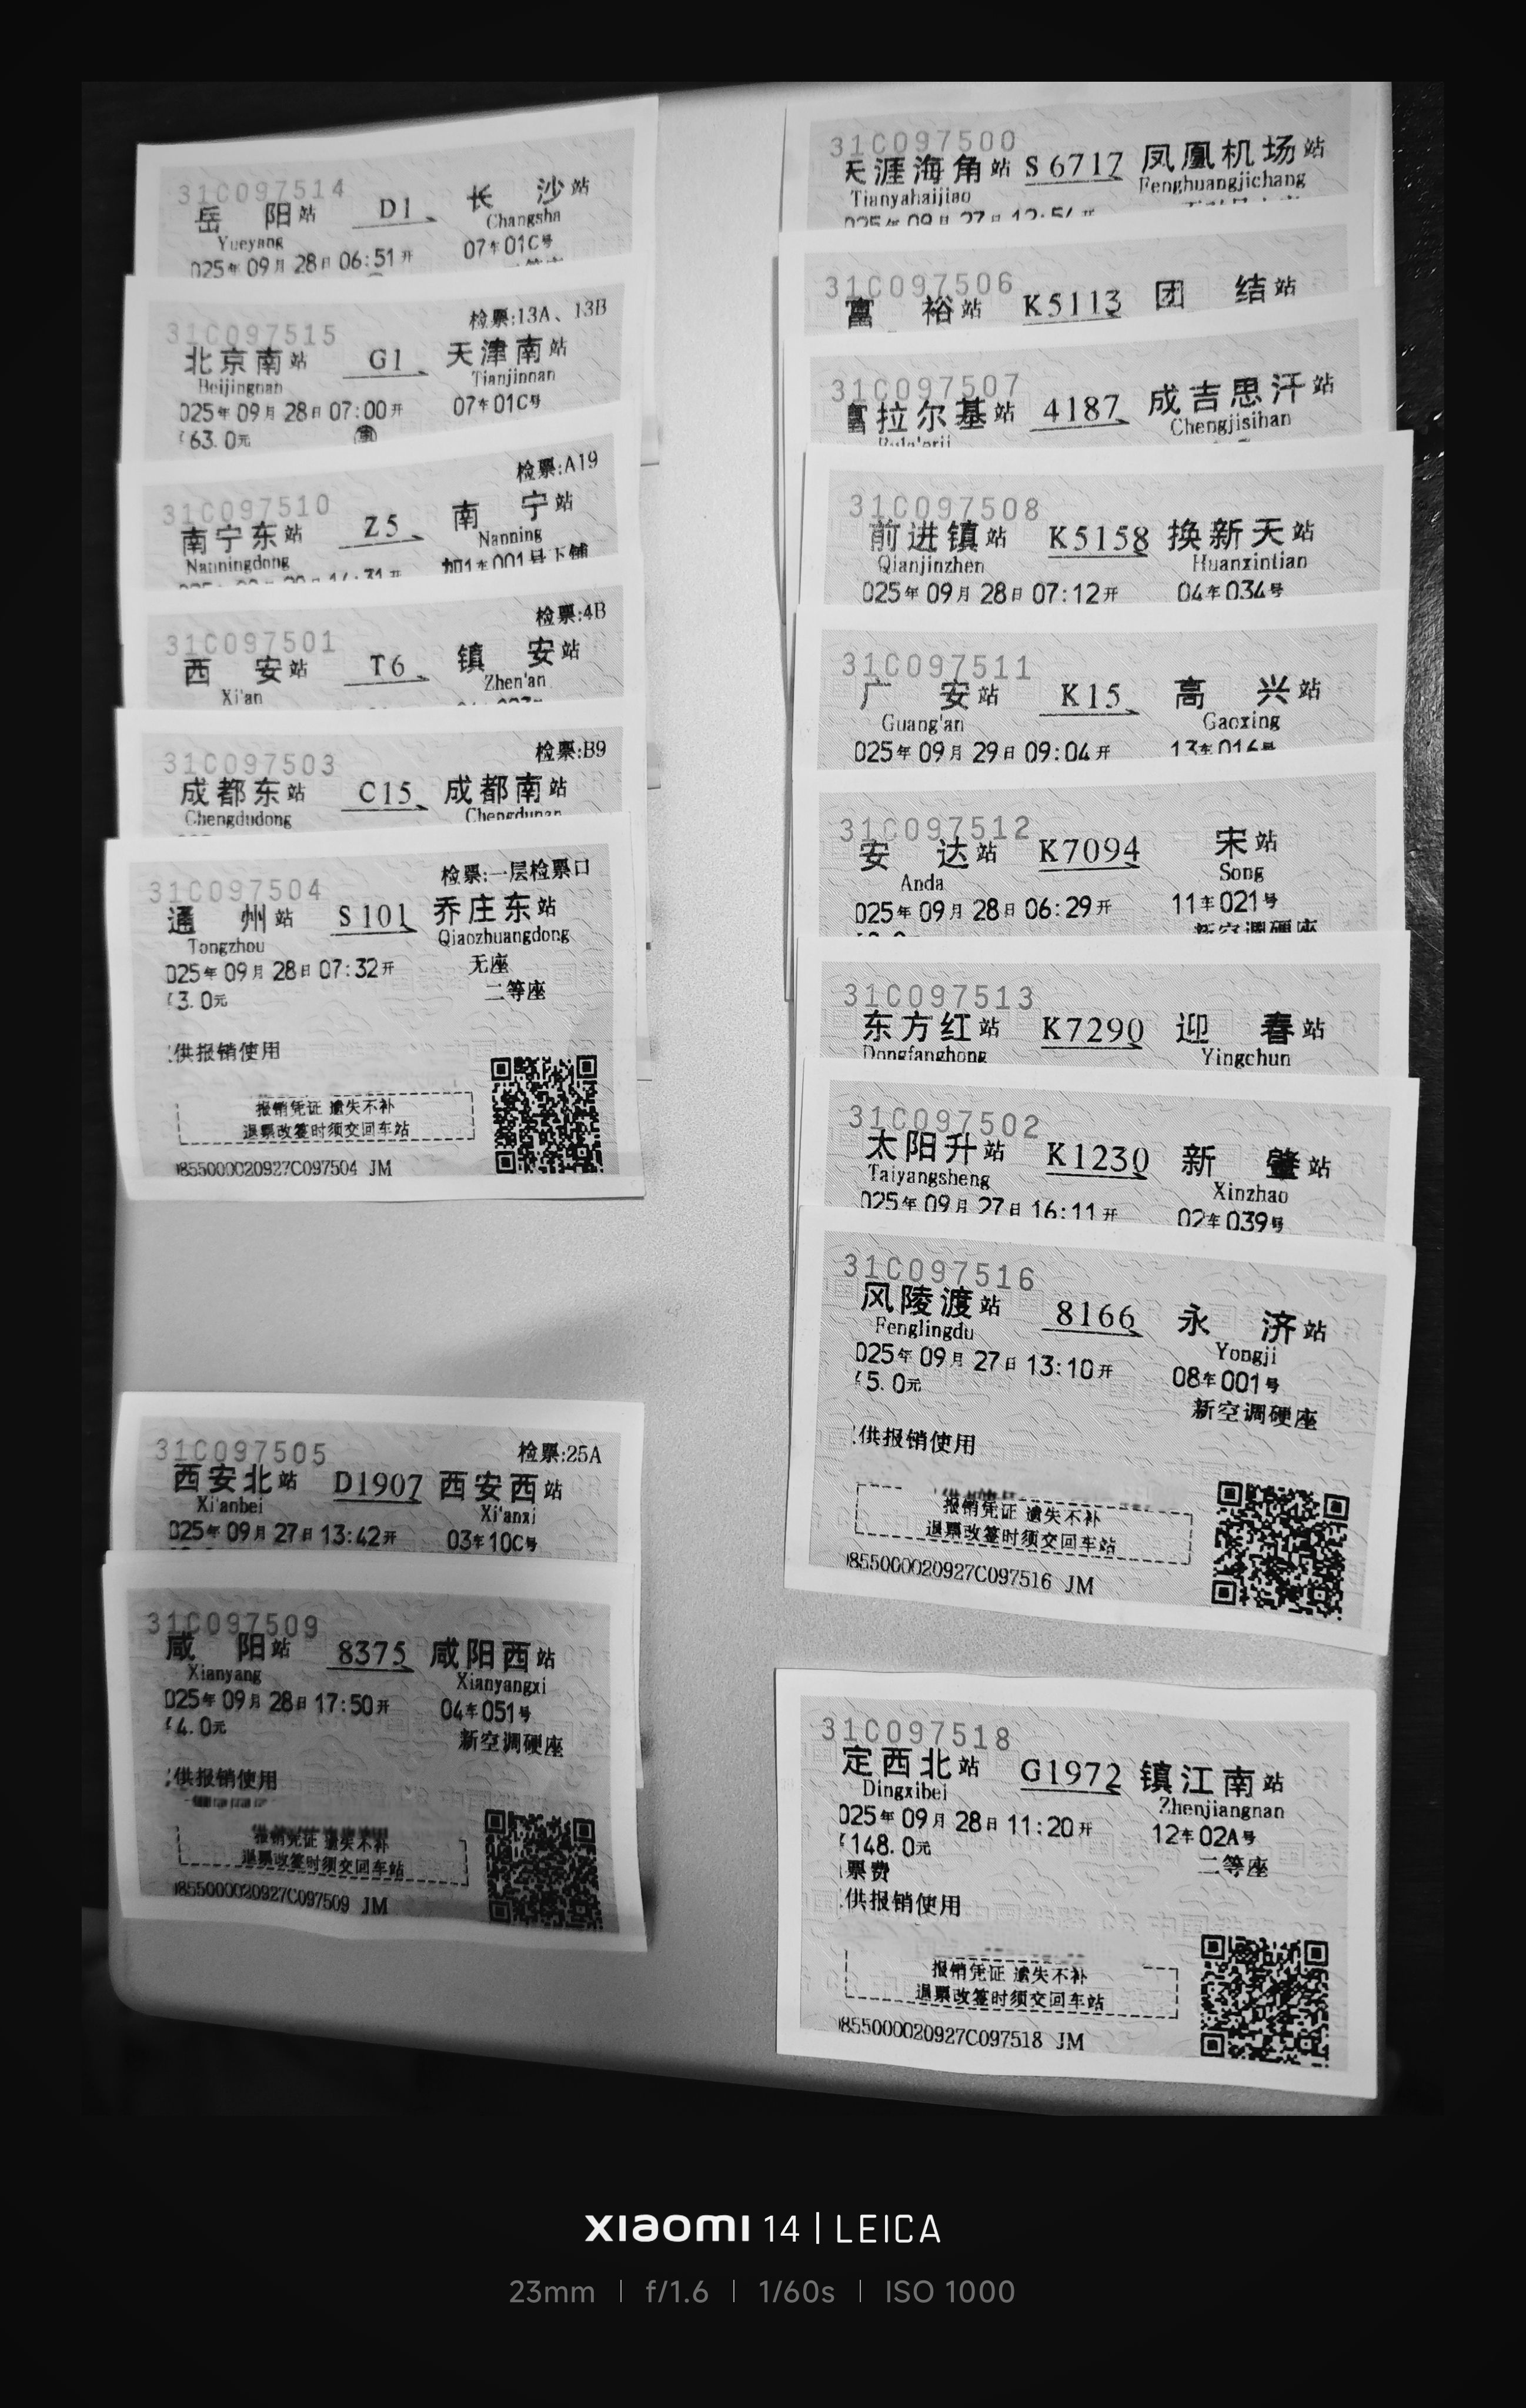 31C097514
岳阳站 D1 长沙站
Yueyang Changsha
025年09月28日06:51开 07车01C号
31C097515 检票:13A、13B
北京南站 G1 天津南站
Beijingnan Tianjinnan
025年09月28日07:00开 07车01C号
63.0元
31C097510 检票:A19
南宁东站 Z5 南宁站
Nanningdong Nanning
加1车001号下铺
31C097501 检票:4B
西安站 T6 镇安站
Xi'an Zhen'an
31C097503 检票:B9
成都东站 C15 成都南站
Chengdudong Chengdunan
31C097504 检票:一层检票口
通州站 S101 乔庄东站
Tongzhou Qiaozhuangdong
025年09月28日07:32开 无座
3.0元 二等座
供报销使用
报销凭证 遗失不补
退票改签时须交回车站
855000020927C097504 JM
31C097505 检票:25A
西安北站 D1907 西安西站
Xi'anbei Xi'anxi
025年09月27日13:42开 03车10C号
31C097509
咸阳站 8375 咸阳西站
Xianyang Xianyangxi
025年09月28日17:50开 04车051号
4.0元 新空调硬座
供报销使用
报销凭证 遗失不补
退票改签时须交回车站
855000020927C097509 JM
31C097500
天涯海角站 S6717 凤凰机场站
Tianyahaijiao Fenghuangjichang
025年09月27日12:54开
31C097506
富裕站 K5113 团结站
31C097507
富拉尔基站 4187 成吉思汗站
Fula'erji Chengjisihan
31C097508
前进镇站 K5158 换新天站
Qianjinzhen Huanxintian
025年09月28日07:12开 04车034号
31C097511
广安站 K15 高兴站
Guang'an Gaoxing
025年09月29日09:04开 13车016号
31C097512
安达站 K7094 宋站
Anda Song
025年09月28日06:29开 11车021号
新空调硬座
31C097513
东方红站 K7290 迎春站
Dongfanghong Yingchun
31C097502
太阳升站 K1230 新肇站
Taiyangsheng Xinzhao
025年09月27日16:11开 02车039号
31C097516
风陵渡站 8166 永济站
Fenglingdu Yongji
025年09月27日13:10开 08车001号
5.0元 新空调硬座
供报销使用
报销凭证 遗失不补
退票改签时须交回车站
855000020927C097516 JM
31C097518
定西北站 G1972 镇江南站
Dingxibei Zhenjiangnan
025年09月28日11:20开 12车02A号
148.0元 二等座
票费
供报销使用
报销凭证 遗失不补
退票改签时须交回车站
855000020927C097518 JM
xiaomi 14 | LEICA
23mm | f/1.6 | 1/60s | ISO 1000